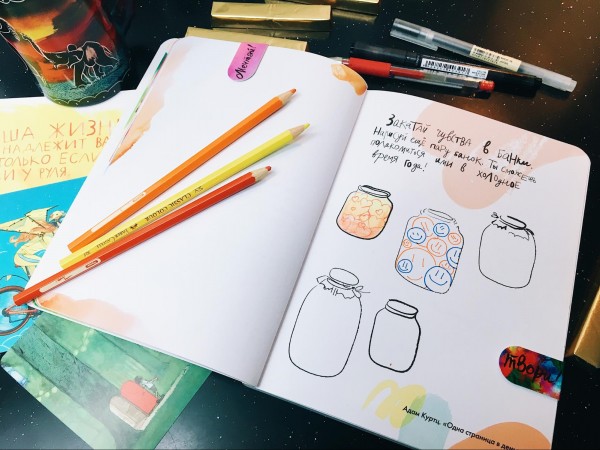 ША ЖИЗН
НАДЛЕЖИТ ВА
ТОЛЬКО ЕСЛИ
И У РУЛЯ.
Мечтай!
CLASSIC COLOUR
Закатай чувства в банки
Нарисуй ещё пару банок. Ты сможешь
полакомиться ими в холодное
время года!
твори!
Адам Куртц. «Одна страница в ден